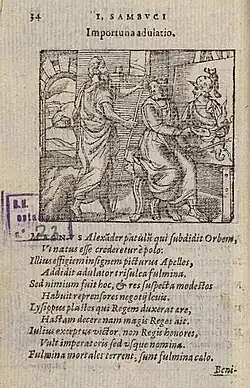 34 I. SAMBVCI
Importuna adulatio.
MAGNVS Alexãder patulũ qui subdidit Orbem,
Vt natus esse crederetur è polo:
Illius effigiem insignem picturus Apelles,
Addidit adulator trisulca fulmina.
Sed nimium fuit hoc, & res suspecta modestos
Habuit reprensores negotij leuis.
Lysippus plastes qui Regem duxerat ære,
Hastam decere nam magis Reges ait.
Iulius exceptus victor, non Regis honores,
Vult imperatoris sed vsque nomina.
Fulmina mortales terrent, sunt fulmina cælo.
Beni-